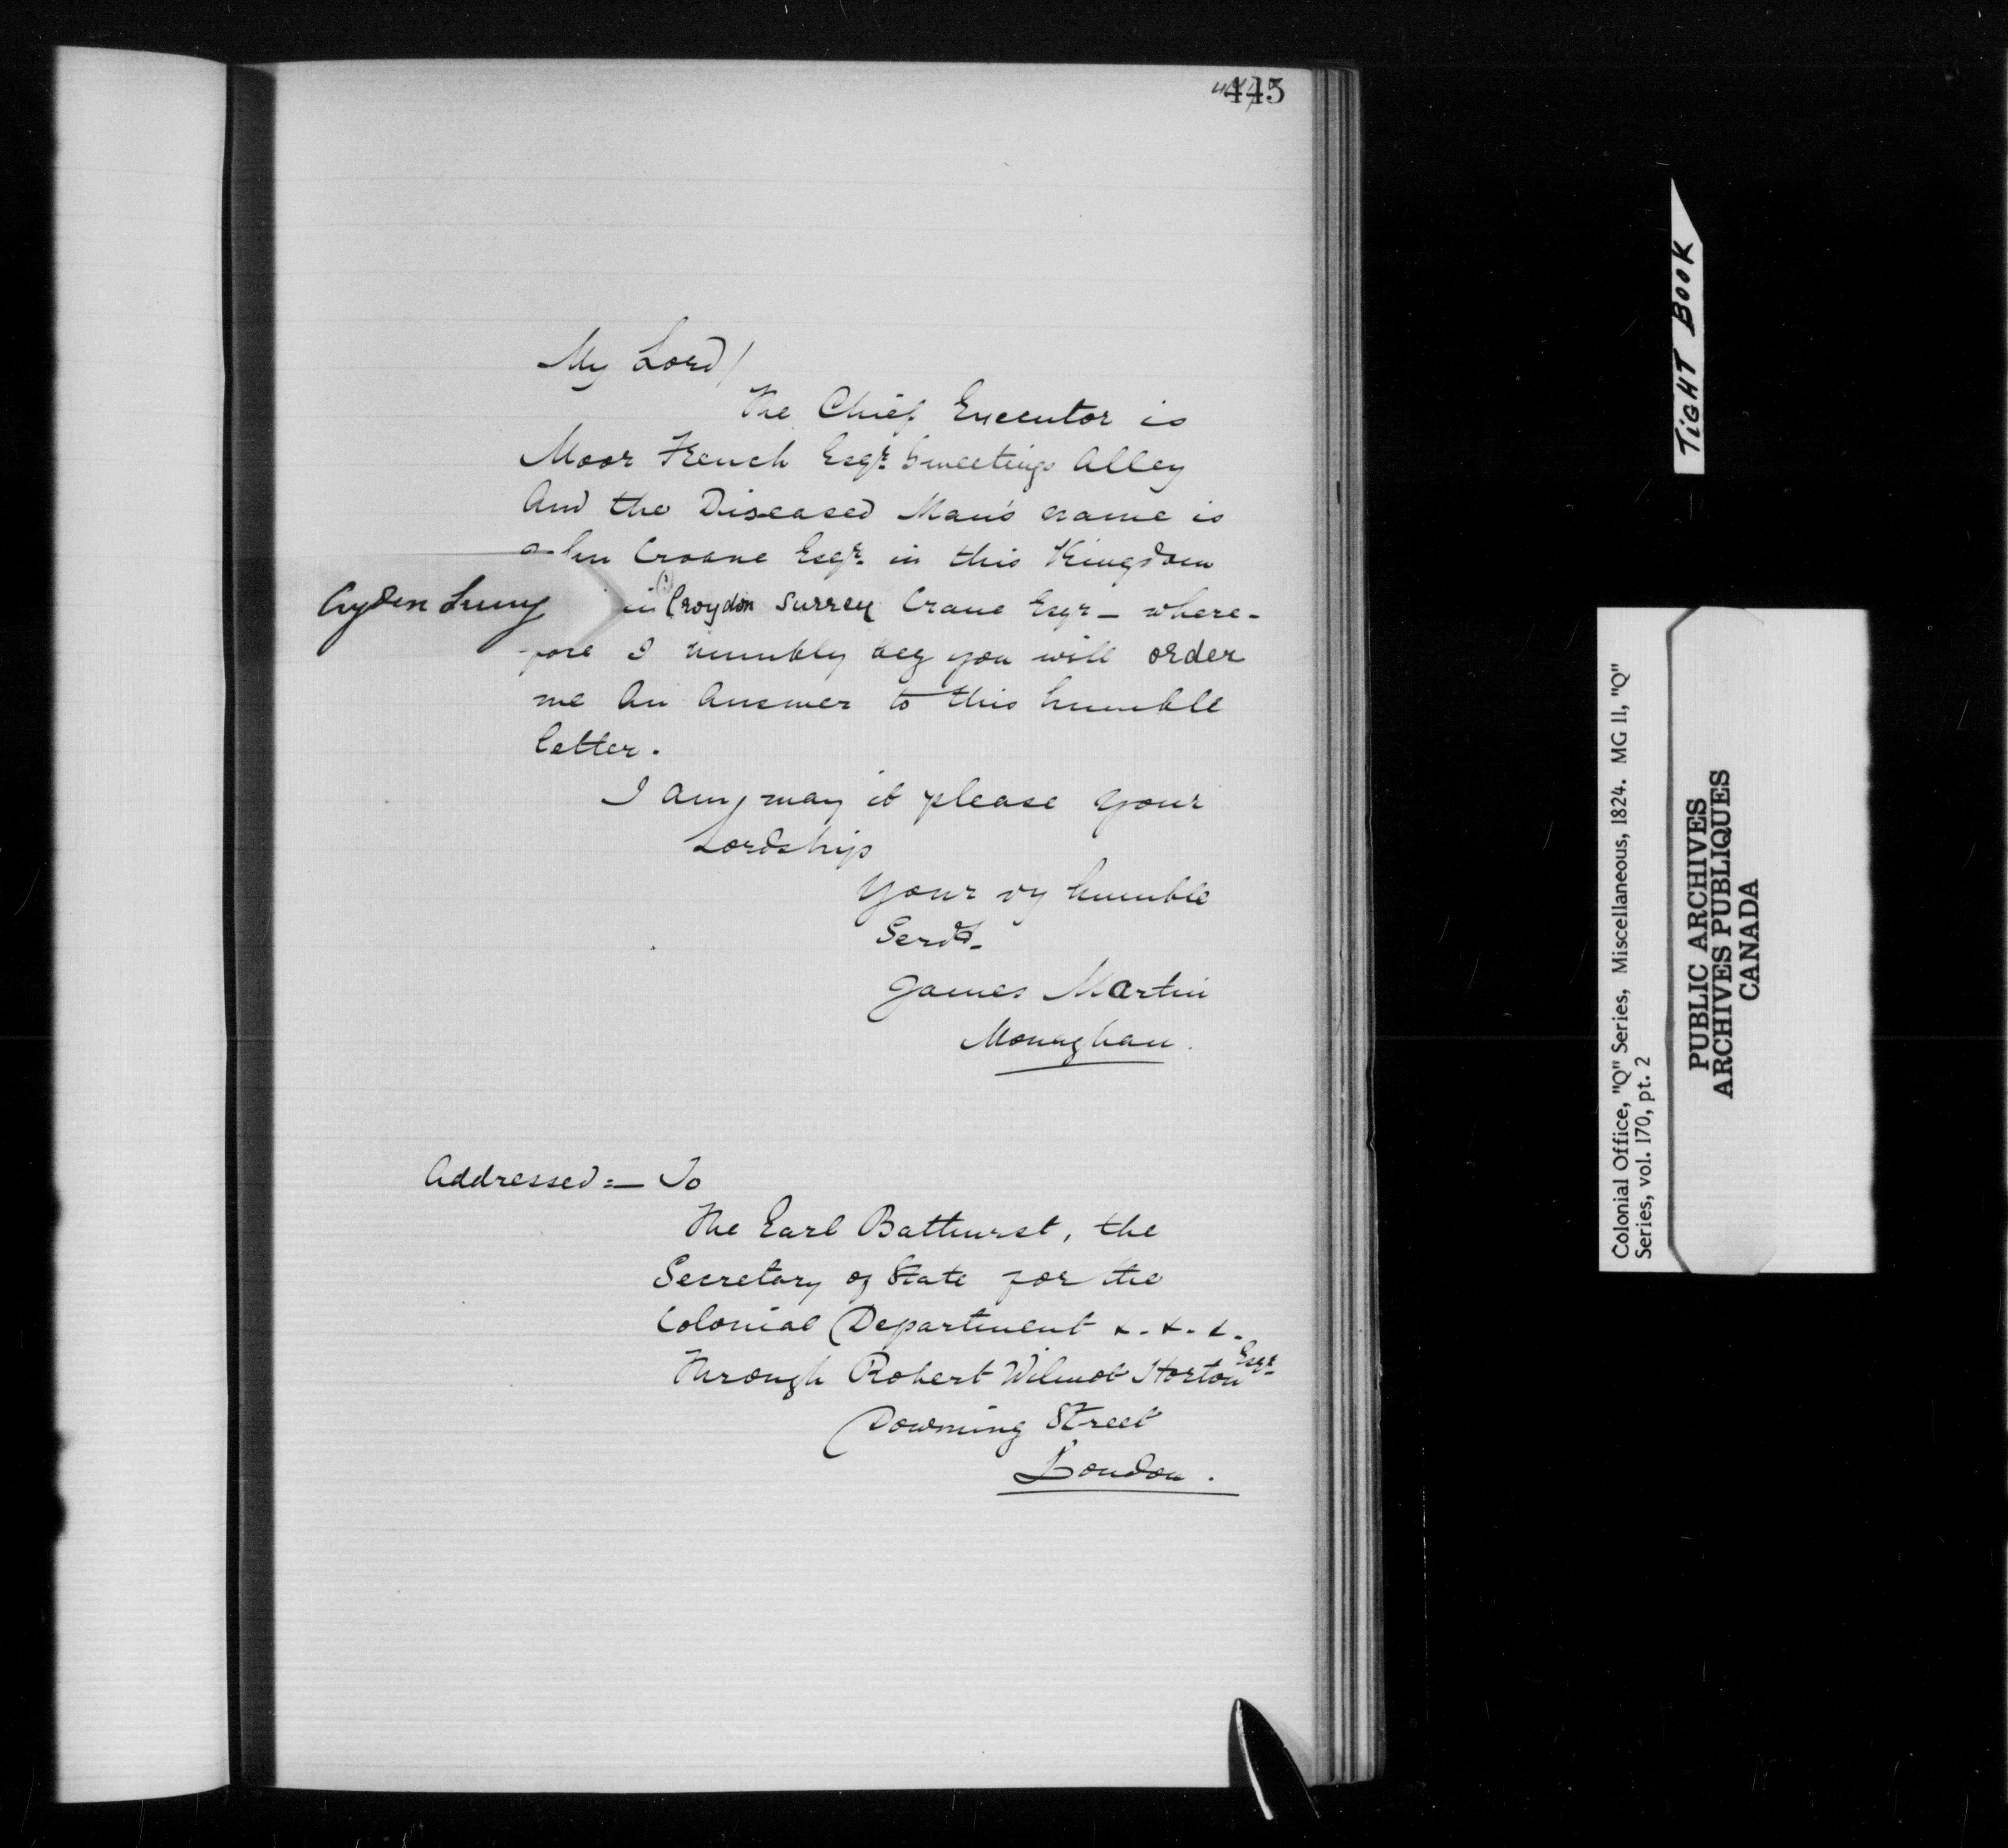 445
My Lord/
The Chief Executor is
Moor French Esqr. Sweetings Alley
And the Diseased Man's name is
John Croane Esqr. in this Kingdom
in (?) Croydon Surrey Crane Esqr – where-
fore I humbly beg you will order
me An Answer to this humble
letter.
I am, may it please your
Lordship
Your vy humble
Servt.
James Martin
Monaghan.
Addressed:— To
The Earl Bathurst, the
Secretary of State for the
Colonial Department &. &. &.
Through Robert Wilmot Horton Esqr.
Downing Street
London.
TIGHT BOOK
Colonial Office, "Q" Series, Miscellaneous, 1824. MG 11, "Q"
Series, vol. 170, pt. 2
PUBLIC ARCHIVES
ARCHIVES PUBLIQUES
CANADA